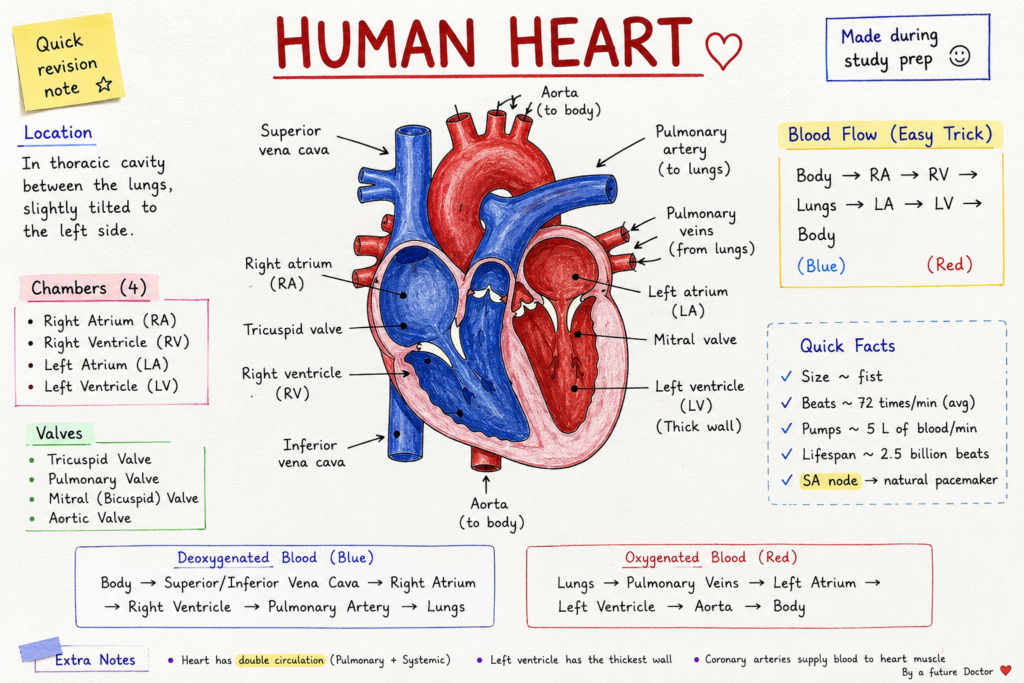 Quick
revision
note
HUMAN HEART
Made during
study prep
Location
In thoracic cavity
between the lungs,
slightly tilted to
the left side.
Chambers (4)
• Right Atrium (RA)
• Right Ventricle (RV)
• Left Atrium (LA)
• Left Ventricle (LV)
Valves
• Tricuspid Valve
• Pulmonary Valve
• Mitral (Bicuspid) Valve
• Aortic Valve
Superior
vena cava
Right atrium
(RA)
Tricuspid valve
Right ventricle
(RV)
Inferior
vena cava
Aorta
(to body)
Pulmonary
artery
(to lungs)
Pulmonary
veins
(from lungs)
Left atrium
(LA)
Mitral valve
Left ventricle
(LV)
(Thick wall)
Aorta
(to body)
Blood Flow (Easy Trick)
Body → RA → RV →
Lungs → LA → LV →
Body
(Blue) (Red)
Quick Facts
✓ Size ~ fist
✓ Beats ~ 72 times/min (avg)
✓ Pumps ~ 5 L of blood/min
✓ Lifespan ~ 2.5 billion beats
✓ SA node → natural pacemaker
Deoxygenated Blood (Blue)
Body → Superior/Inferior Vena Cava → Right Atrium
→ Right Ventricle → Pulmonary Artery → Lungs
Oxygenated Blood (Red)
Lungs → Pulmonary Veins → Left Atrium →
Left Ventricle → Aorta → Body
Extra Notes
• Heart has double circulation (Pulmonary + Systemic)
• Left ventricle has the thickest wall
• Coronary arteries supply blood to heart muscle
By a future Doctor